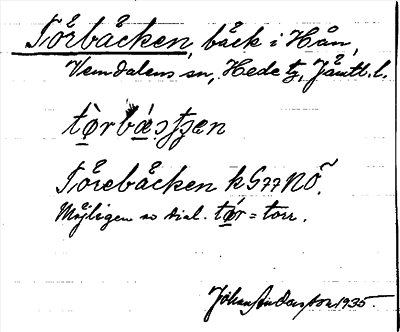 Törbäcken, bäck i Hån,
Vemdalens sn, Hede tg, Jämtl. l.
Törebäcken k G77 NÖ.
Möjligen so dial. tör = torr.
Johan Andersson 1935.